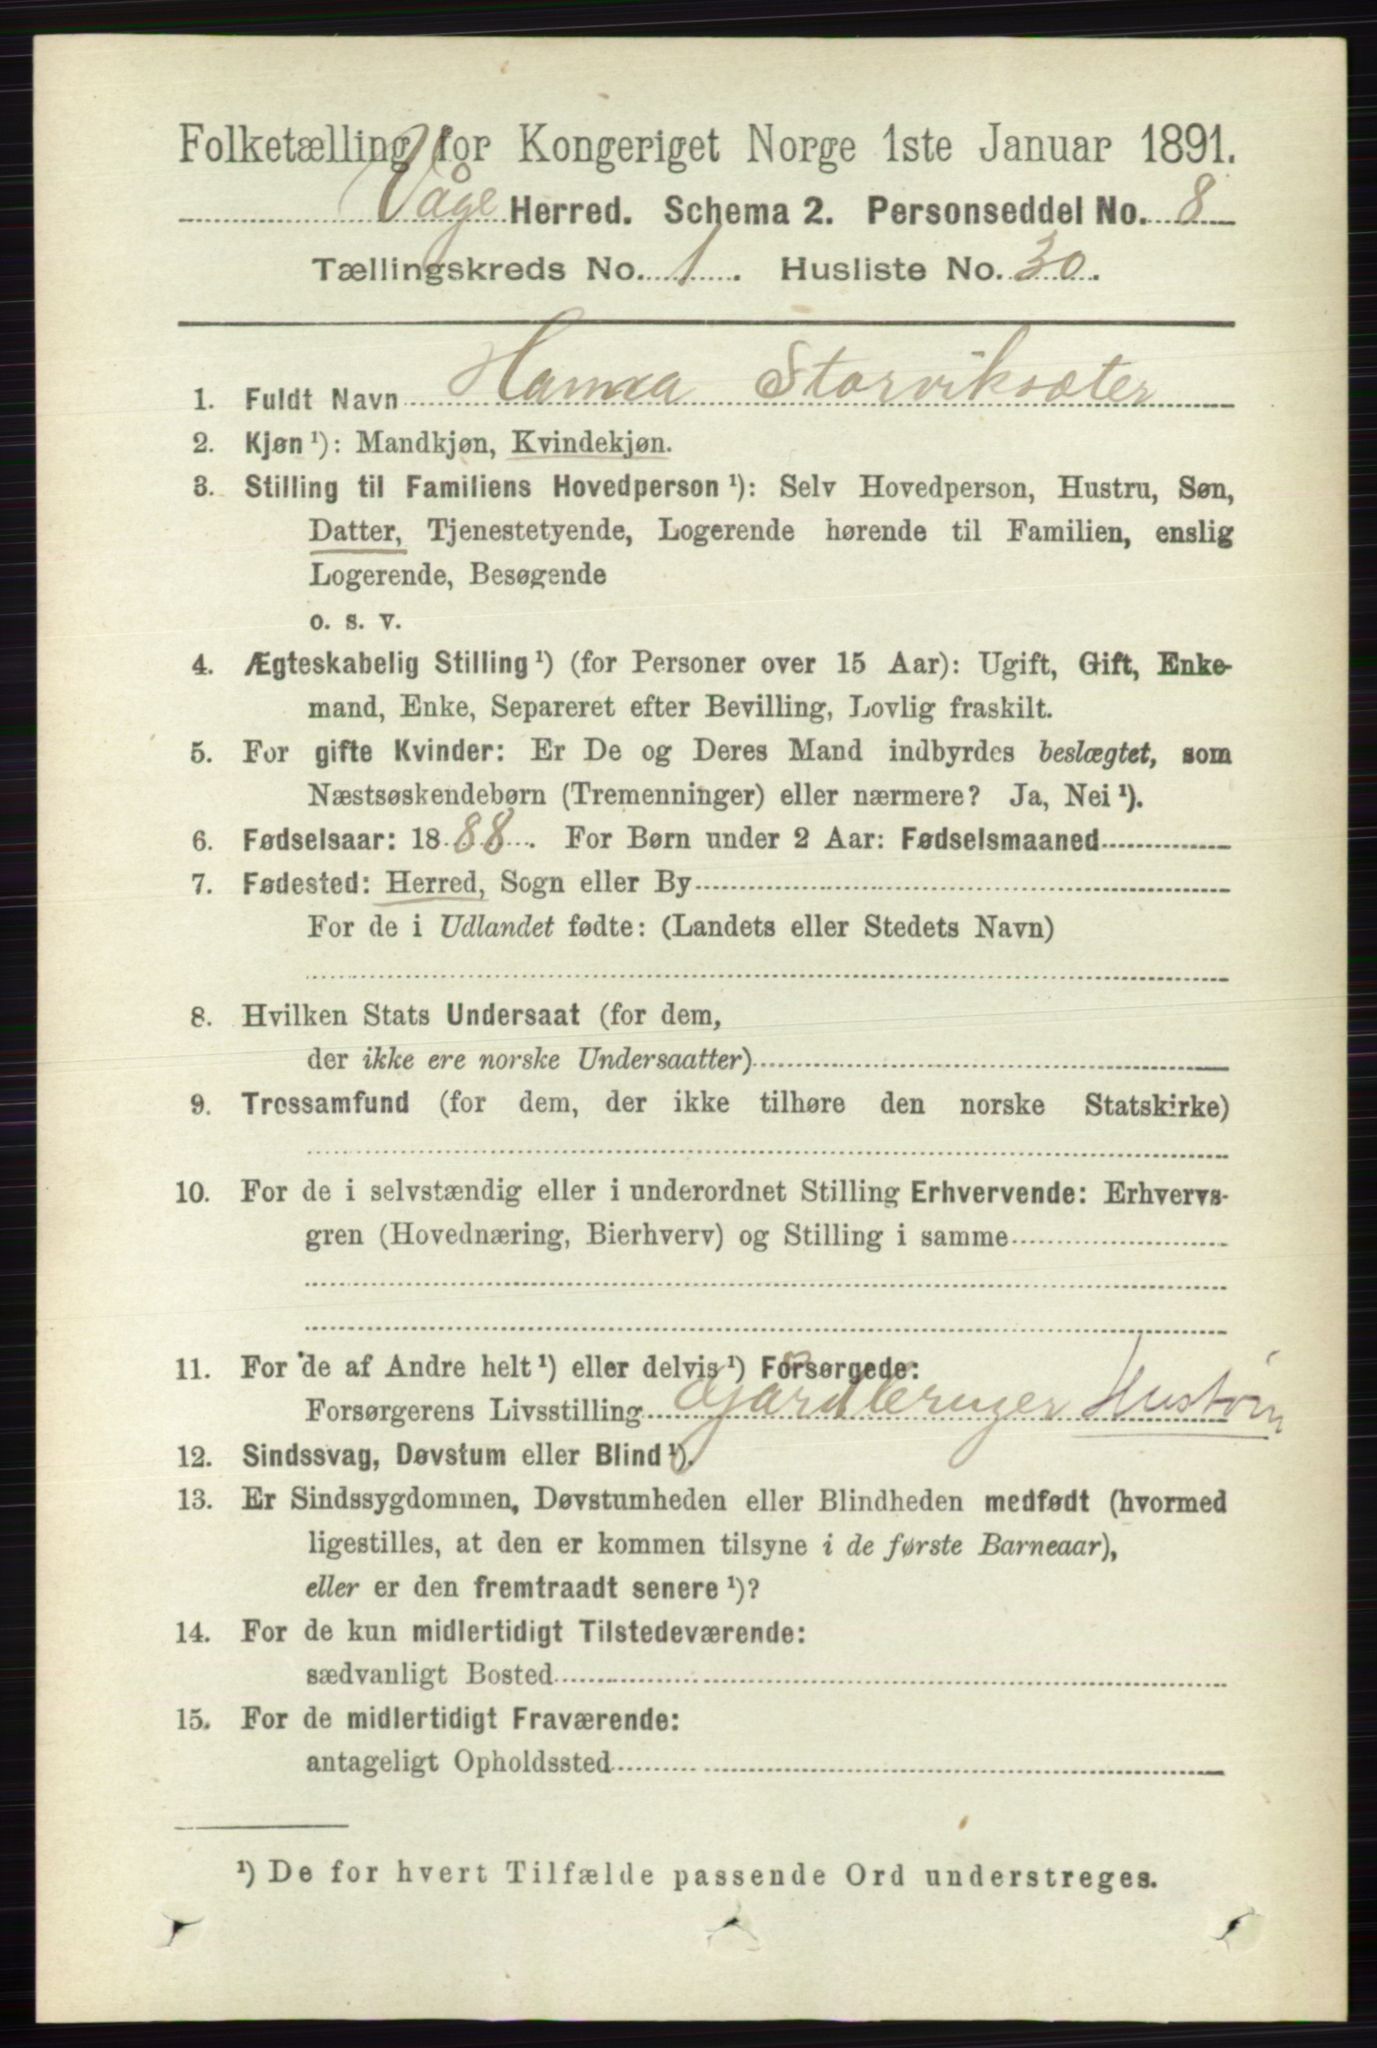 Folketælling for Kongeriget Norge 1ste Januar 1891.
Våge Herred. Schema 2. Personseddel No. 8
Tællingskreds No. 1. Husliste No. 30.
1. Fuldt Navn Hanna Storviksæter
2. Kjøn ¹): Mandkjøn, Kvindekjøn.
3. Stilling til Familiens Hovedperson ¹): Selv Hovedperson, Hustru, Søn,
Datter, Tjenestetyende, Logerende hørende til Familien, enslig
Logerende, Besøgende
o. s. v.
4. Ægteskabelig Stilling ¹) (for Personer over 15 Aar): Ugift, Gift, Enke-
mand, Enke, Separeret efter Bevilling, Lovlig fraskilt.
5. For gifte Kvinder: Er De og Deres Mand indbyrdes beslægtet, som
Næstsøskendebørn (Tremenninger) eller nærmere? Ja, Nei ¹).
6. Fødselsaar: 1888. For Børn under 2 Aar: Fødselsmaaned
7. Fødested: Herred, Sogn eller By
For de i Udlandet fødte: (Landets eller Stedets Navn)
8. Hvilken Stats Undersaat (for dem,
der ikke ere norske Undersaatter)
9. Trossamfund (for dem, der ikke tilhøre den norske Statskirke)
10. For de i selvstændig eller i underordnet Stilling Erhvervende: Erhvervs-
gren (Hovednæring, Bierhverv) og Stilling i samme
11. For de af Andre helt ¹) eller delvis ¹) Forsørgede:
Forsørgerens Livsstilling Gårdbruger
12. Sindssvag, Døvstum eller Blind ¹).
13. Er Sindssygdommen, Døvstumheden eller Blindheden medfødt (hvormed
ligestilles, at den er kommen tilsyne i de første Barneaar),
eller er den fremtraadt senere ¹)?
14. For de kun midlertidigt Tilstedeværende:
sædvanligt Bosted
15. For de midlertidigt Fraværende:
antageligt Opholdssted
¹) De for hvert Tilfælde passende Ord understreges.